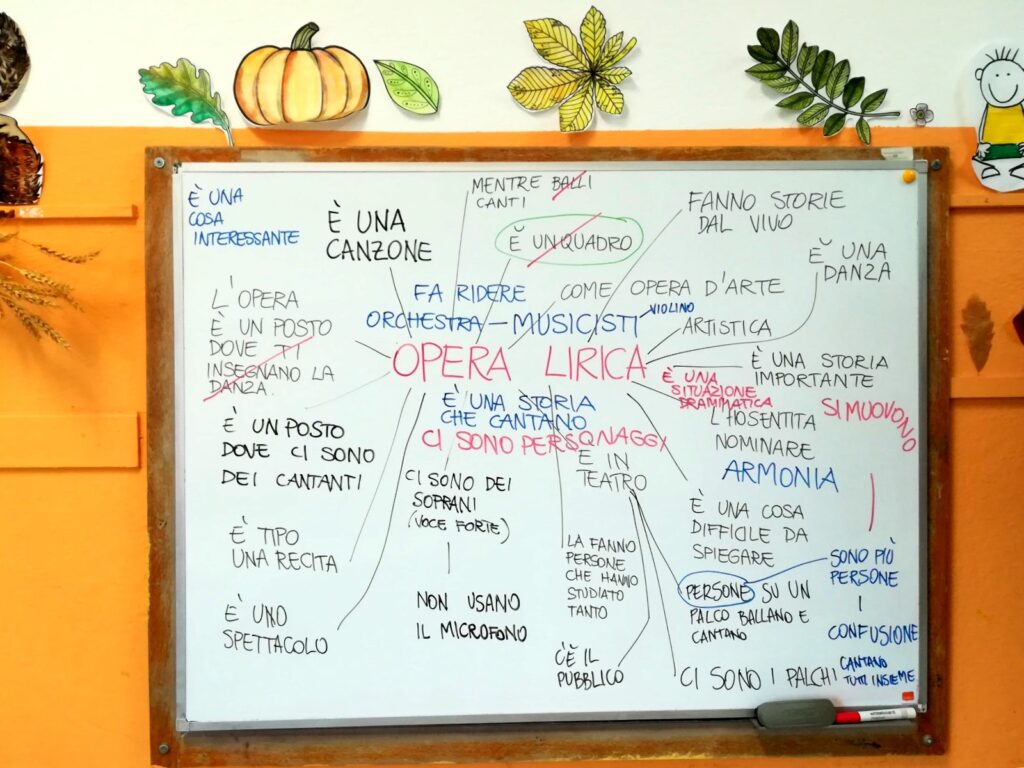 È UNA
COSA
INTERESSANTE
È UNA
CANZONE
MENTRE BALLI
CANTI
È UN QUADRO
FANNO STORIE
DAL VIVO
È UNA
DANZA
L'OPERA
È UN POSTO
DOVE TI
INSEGNANO LA
DANZA.
FA RIDERE
COME OPERA D'ARTE
ORCHESTRA - MUSICISTI
VIOLINO
ARTISTICA
OPERA LIRICA
È UNA STORIA
IMPORTANTE
È UNA
SITUAZIONE
DRAMMATICA
È UNA STORIA
CHE CANTANO
CI SONO PERSONAGGI
L'HO SENTITA
NOMINARE
SI MUOVONO
ARMONIA
È UN POSTO
DOVE CI SONO
DEI CANTANTI
CI SONO DEI
SOPRANI
(VOCE FORTE)
E IN
TEATRO
È UNA COSA
DIFFICILE DA
SPIEGARE
È TIPO
UNA RECITA
LA FANNO
PERSONE
CHE HANNO
STUDIATO
TANTO
PERSONE SU UN
PALCO BALLANO E
CANTANO
SONO PIÙ
PERSONE
CONFUSIONE
CANTANO
TUTTI INSIEME
È UNO
SPETTACOLO
NON USANO
IL MICROFONO
C'È IL
PUBBLICO
CI SONO I PALCHI